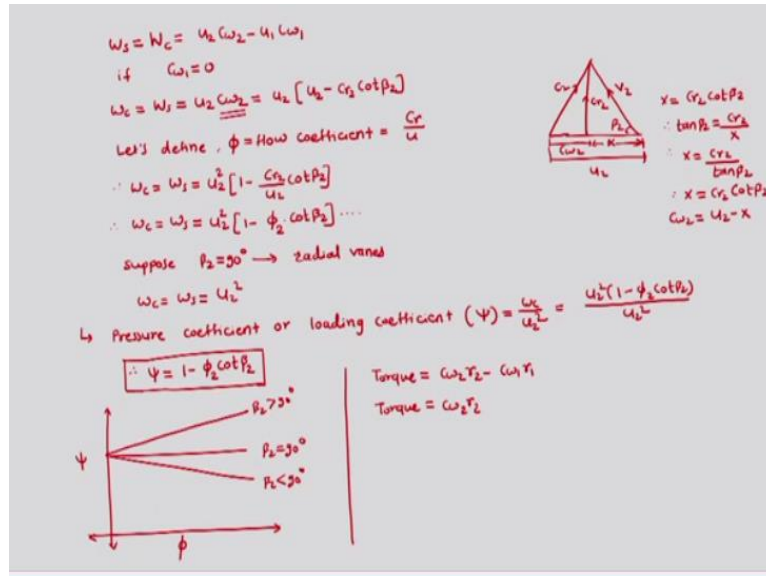 Ws = Wc = U2 Cω2 - U1 Cω1
if Cω1 = 0
Wc = Ws = U2 Cω2 = U2 [U2 - Cr2 cotβ2]
Let's define, ϕ = flow coefficient = Cr/U
∴ Wc = Ws = U2² [1 - Cr2/U2 cotβ2]
∴ Wc = Ws = U2² [1 - ϕ2 . cotβ2] ....
suppose β2 = 90° → radial vanes
Wc = Ws = U2²
↳ Pressure coefficient or loading coefficient (Ψ) = Wc/U2² = U2² (1 - ϕ2 cotβ2)/U2²
∴ Ψ = 1 - ϕ2 cotβ2
β2 > 90°
β2 = 90°
β2 < 90°
Ψ
ϕ
Torque = Cω2 r2 - Cω1 r1
Torque = Cω2 r2
C2
Cr2
V2
β2
Cω2
x
U2
x = Cr2 cotβ2
∴ tanβ2 = Cr2/x
∴ x = Cr2/tanβ2
∴ x = Cr2 cotβ2
Cω2 = U2 - x